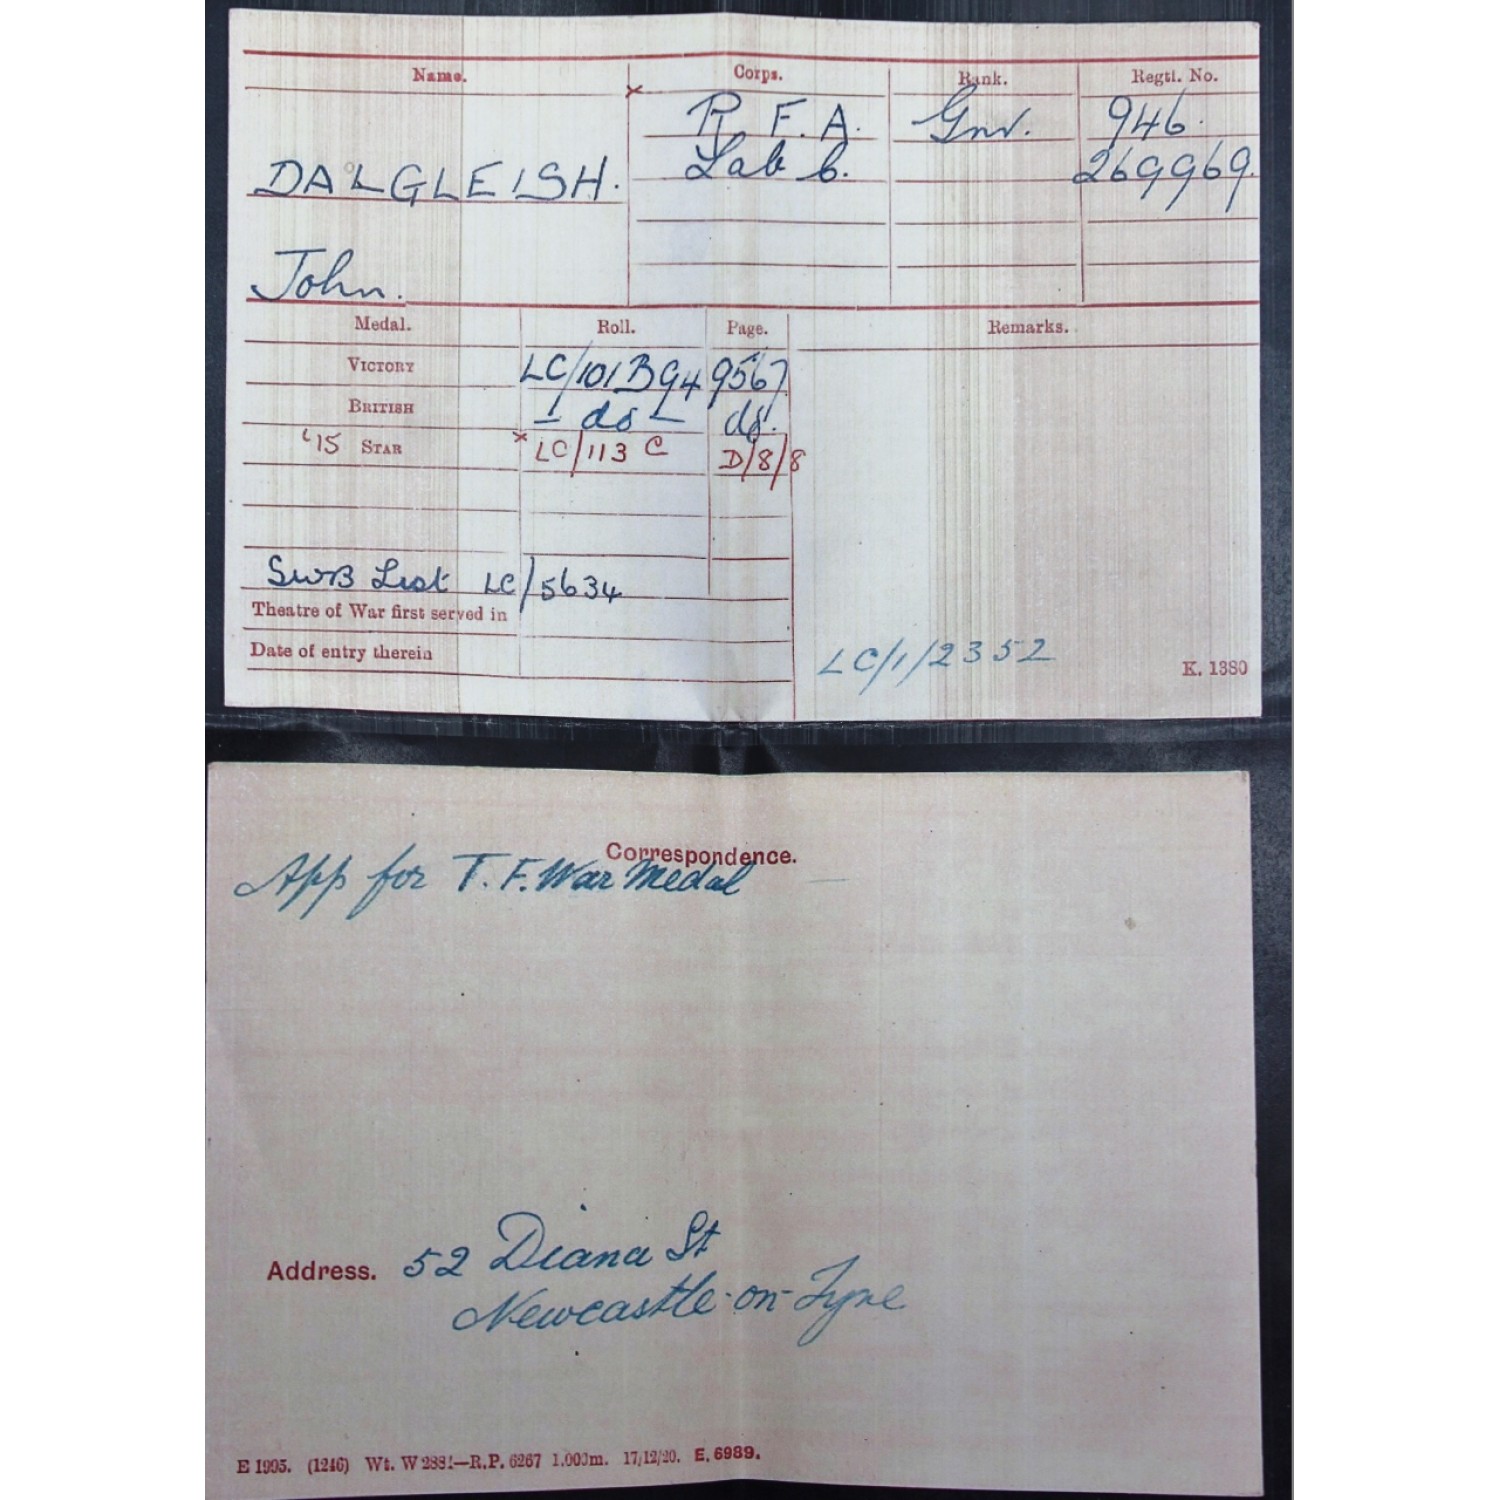 Name. Corps. Rank. Regtl. No.
× R. F. A. Gnr. 946.
DALGLEISH. Lab C. 269969.
John.
Medal. Roll. Page. Remarks.
VICTORY LC/101B94 9567
BRITISH - do - do.
'15 STAR × LC/113 C D/8/8
SWB List LC/5634
Theatre of War first served in
Date of entry therein
LC/1/2352
K. 1380
Correspondence.
App for T. F. War Medal
Address. 52 Diana St
Newcastle-on-Tyne
E 1995. (1246) Wt. W 288!—R.P. 6267 1,000m. 17/12/20. E. 6989.